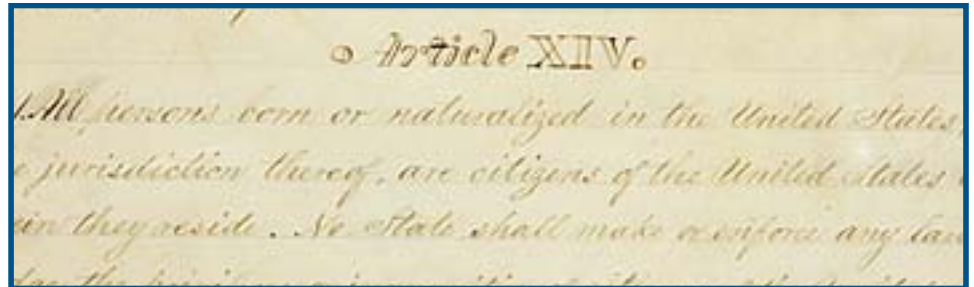 Article XIV.
1. All persons born or naturalized in the United States,
e jurisdiction thereof, are citizens of the United States
ein they reside. No State shall make or enforce any law
the